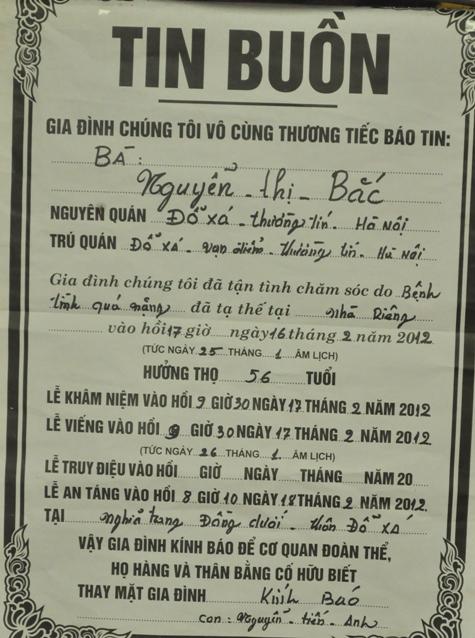 TIN BUỒN
GIA ĐÌNH CHÚNG TÔI VÔ CÙNG THƯƠNG TIẾC BÁO TIN:
BÀ:
Nguyễn - thị - Bắc
NGUYÊN QUÁN Đỗ xá - thường tín - Hà Nội
TRÚ QUÁN Đỗ xá - vạn điểm - thường tín - Hà Nội
Gia đình chúng tôi đã tận tình chăm sóc do Bệnh
tình quá nặng đã tạ thế tại Nhà Riêng
vào hồi 17 giờ ngày 16 tháng 2 năm 2012
(TỨC NGÀY 25 THÁNG 1 ÂM LỊCH)
HƯỞNG THỌ 56 TUỔI
LỄ KHÂM NIỆM VÀO HỒI 9 GIỜ 30 NGÀY 17 THÁNG 2 NĂM 2012
LỄ VIẾNG VÀO HỒI 9 GIỜ 30 NGÀY 17 THÁNG 2 NĂM 2012
(TỨC NGÀY 26 THÁNG 1 ÂM LỊCH)
LỄ TRUY ĐIỆU VÀO HỒI GIỜ NGÀY THÁNG NĂM 20
LỄ AN TÁNG VÀO HỒI 8 GIỜ 10 NGÀY 18 THÁNG 2 NĂM 2012
TẠI nghĩa trang Đống dưới - thôn Đỗ xá
VẬY GIA ĐÌNH KÍNH BÁO ĐỂ CƠ QUAN ĐOÀN THỂ,
HỌ HÀNG VÀ THÂN BẰNG CỐ HỮU BIẾT
THAY MẶT GIA ĐÌNH Kính Báo
Con: Nguyễn - tiến - Anh